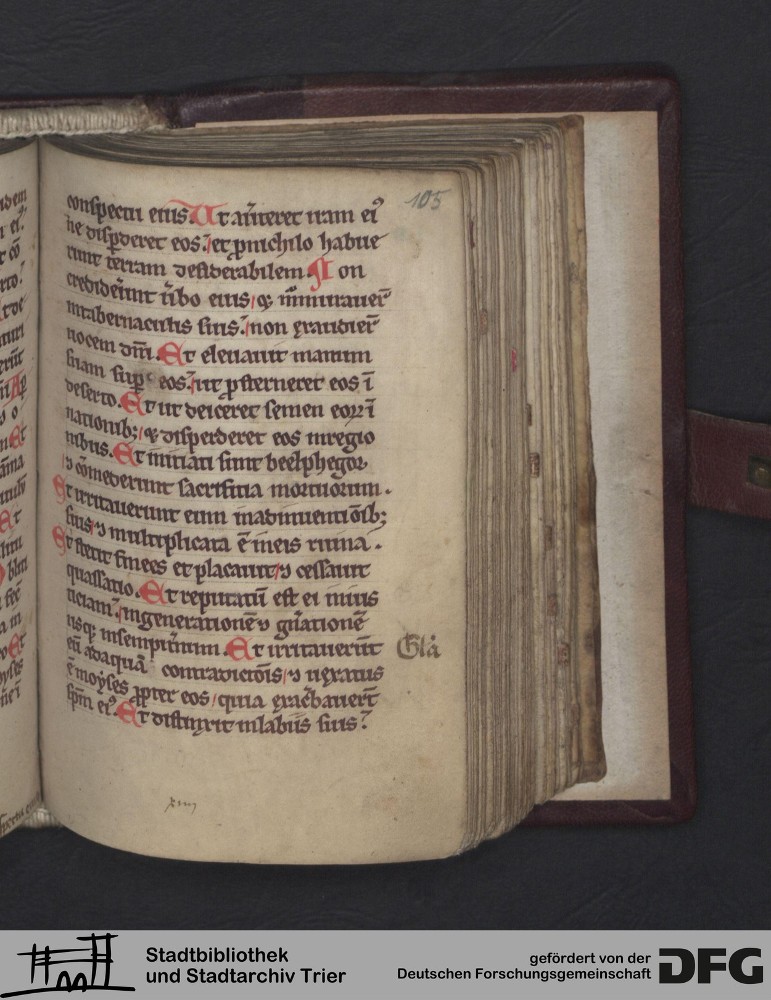 105
conspectu eius. Ut aũteret iram ei᾽
ne disꝑderet eos. et ꝓ nichilo habue
runt terram desiderabilem. Non
crediderũt ũbo eius, ⁊ mũmurauer̃
in tabernaculis suis. non exaudier̃
uocem dñi. Et eleuauit manum
suam suꝑ eos. ut ꝓsterneret eos ĩ
deserto. Et ut deiceret semen eoꝝ ĩ
nationib; ⁊ disperderet eos in regio
nibus. Et initiati sunt beelphegor
⁊ cõmederunt sacrifitia mortuorum.
Et irritauerunt eum in adinuentiõib;
suis ⁊ multiplicata ẽ in eis ruina.
Et stetit finees et placauit, ⁊ cessauit
quassatio. Et reputatũ est ei iniusti
ticiam, in generationẽ ⁊ gñationẽ
usq; in sempitñum. Et irritauerũt
Glã
eũ ad aquã contradictiõis, ⁊ uexatus
ẽ moyses ꝓpter eos, quia exacẽbauerũt
spm̃ ei᾽. Et distinxit in labiis suis.
Stadtbibliothek
und Stadtarchiv Trier
gefördert von der
Deutschen Forschungsgemeinschaft
DFG